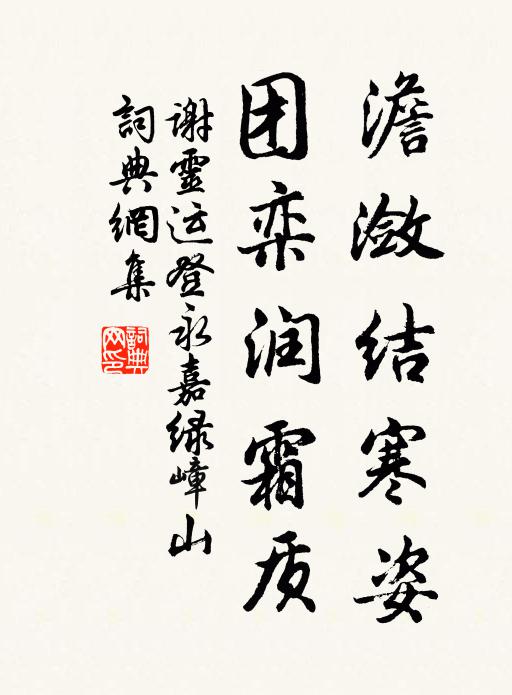 澹潋结寒姿
团栾润霜质
谢靈运登永嘉绿嶂山
詞典網集
詞典網印